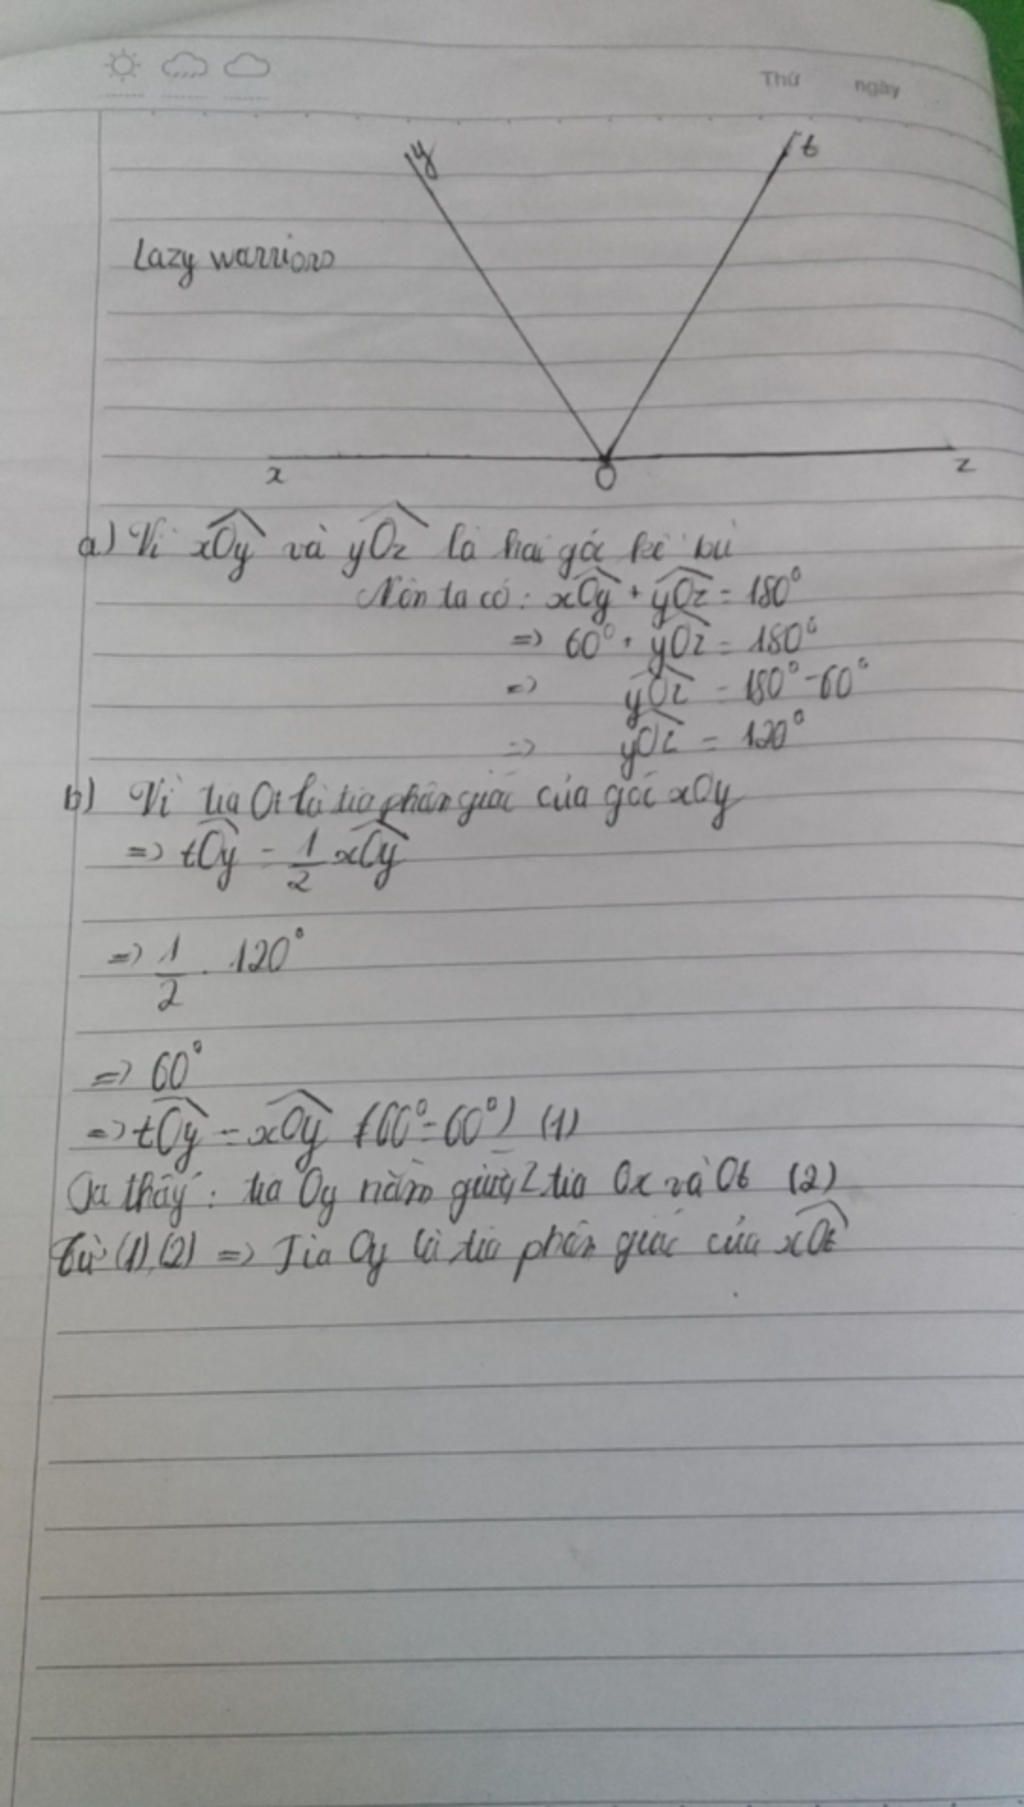 Thứ ngày
y t
Lazy warriors
x O z
a) Vì xOy và yOz là hai góc kề bù
Nên ta có: xOy + yOz = 180°
=> 60° + yOz = 180°
=> yOz = 180° - 60°
=> yOz = 120°
b) Vì tia Ot là tia phân giác của góc xOy
=> tOy = 1/2 xOy
=> 1/2 . 120°
=> 60°
=> tOy = xOy (60° = 60°) (1)
Ta thấy: tia Oy nằm giữa 2 tia Ox và Ot (2)
Từ (1),(2) => Tia Oy là tia phân giác của xOt